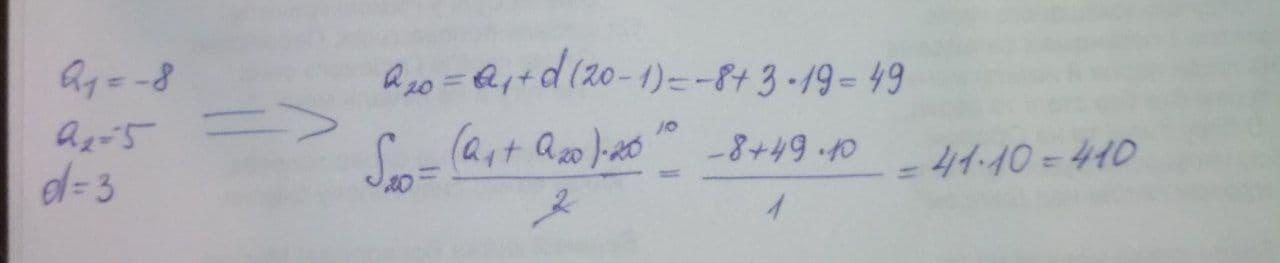 a₁ = -8
a₂ = -5
d = 3
=>
a₂₀ = a₁ + d(20-1) = -8 + 3 · 19 = 49
S₂₀ = (a₁ + a₂₀) · 20 ¹⁰ / 2 = -8 + 49 · 10 / 1 = 41 · 10 = 410